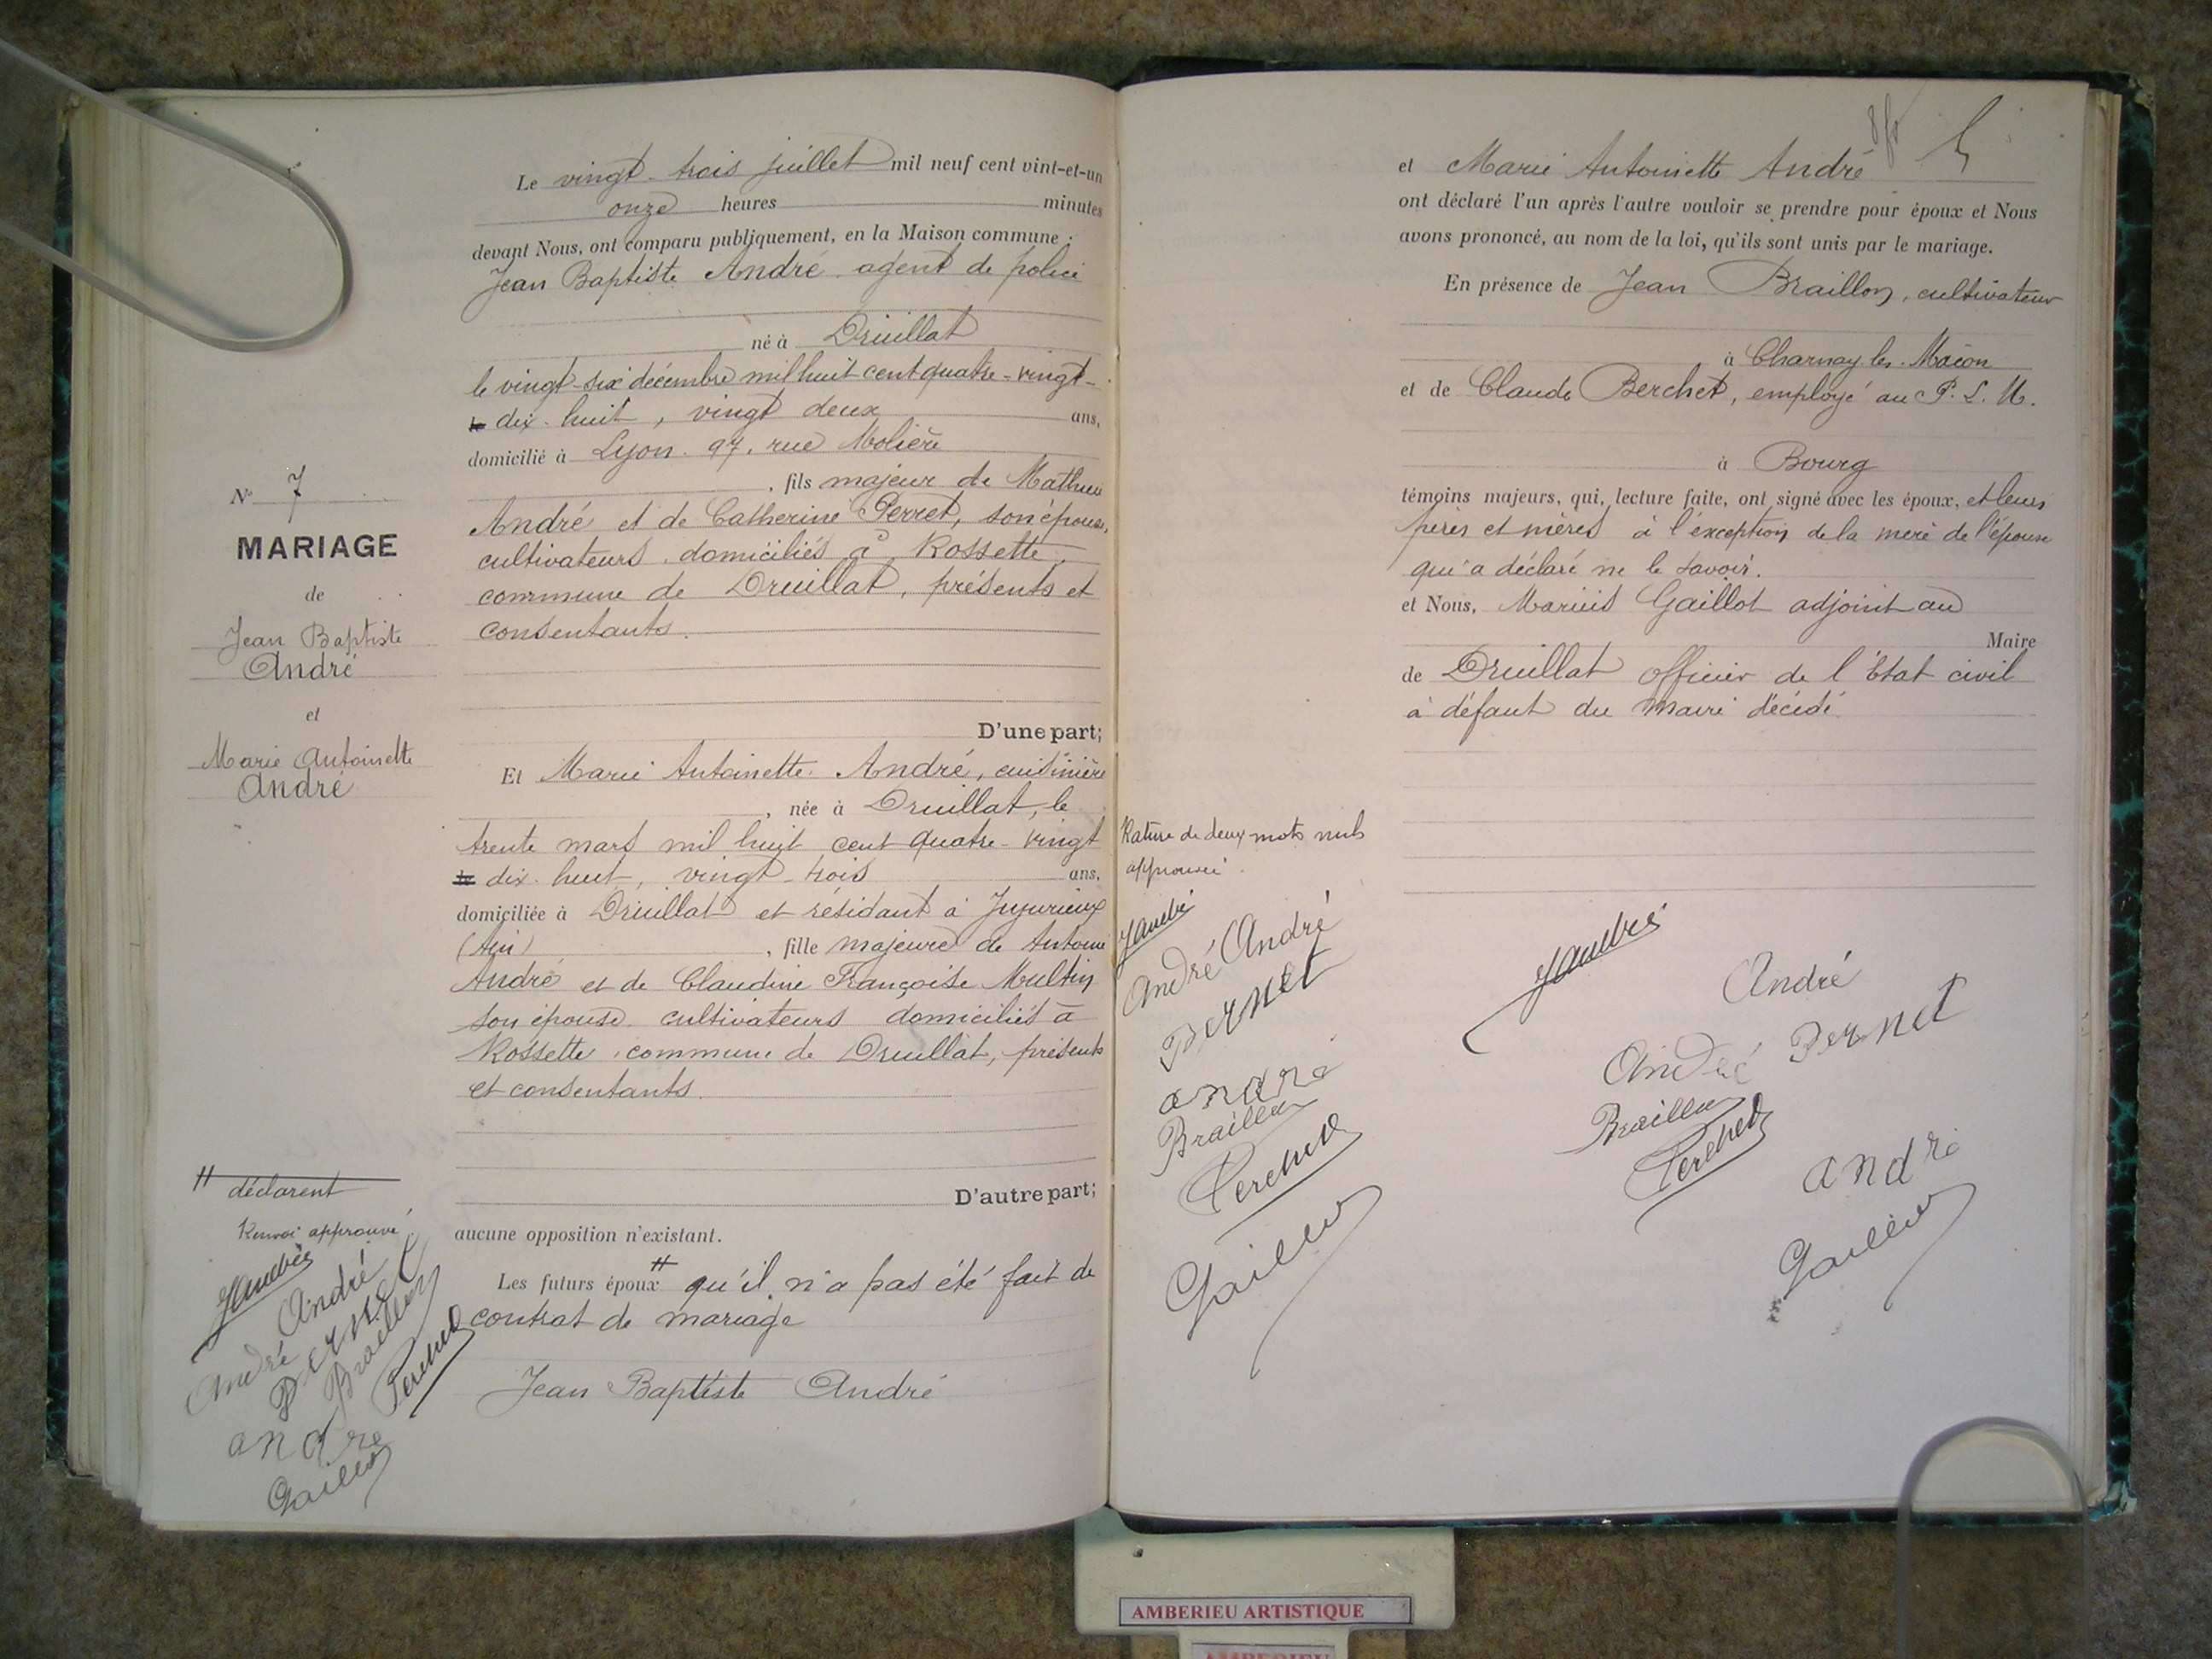 N° 7
MARIAGE
de
Jean Baptiste
André
et
Marie Antoinette
André
déclarent
Renvoi approuvé
André
André
Pernet
Braillon
andre
Le vingt-trois juillet mil neuf cent vint-et-un
onze heures minutes
devant Nous, ont comparu publiquement, en la Maison commune :
Jean Baptiste André agent de police
né à Druillat
le vingt-six décembre mil huit cent quatre-vingt-
dix-huit, vingt deux ans,
domicilié à Lyon 97, rue Molière
, fils majeur de Mathieu
André et de Catherine Perret, son épouse,
cultivateurs domiciliés à Rossette
commune de Druillat, présents et
consentants.
D'une part;
Et Marie Antoinette André, cuisinière
, née à Druillat, le
trente mars mil huit cent quatre-vingt
dix-huit, vingt-trois ans,
domiciliée à Druillat et résidant à Jujurieux
(Ain) , fille majeure de Antoine
André et de Claudine Françoise Multin
son épouse cultivateurs domiciliés à
Rossette commune de Druillat, présents
et consentants.
D'autre part;
aucune opposition n'existant.
Les futurs époux qu'il n'a pas été fait de
contrat de mariage
Jean Baptiste André
et Marie Antoinette André
ont déclaré l'un après l'autre vouloir se prendre pour époux et Nous
avons prononcé, au nom de la loi, qu'ils sont unis par le mariage.
En présence de Jean Braillon, cultivateur
à Charnay les Mâcon
et de Claude Berchet, employé au P. L. M.
à Bourg
témoins majeurs, qui, lecture faite, ont signé avec les époux, et leurs
pères et mères à l'exception de la mère de l'épouse
qui a déclaré ne le savoir.
et Nous, Marius Gaillot adjoint au
Maire
de Druillat officier de l'Etat civil
à défaut du maire décédé
Rature de deux mots nuls
approuvée
André André
Pernet
andre
Braillon
André
André Pernet
Braillon
andre
AMBERIEU ARTISTIQUE
AMBERIEU